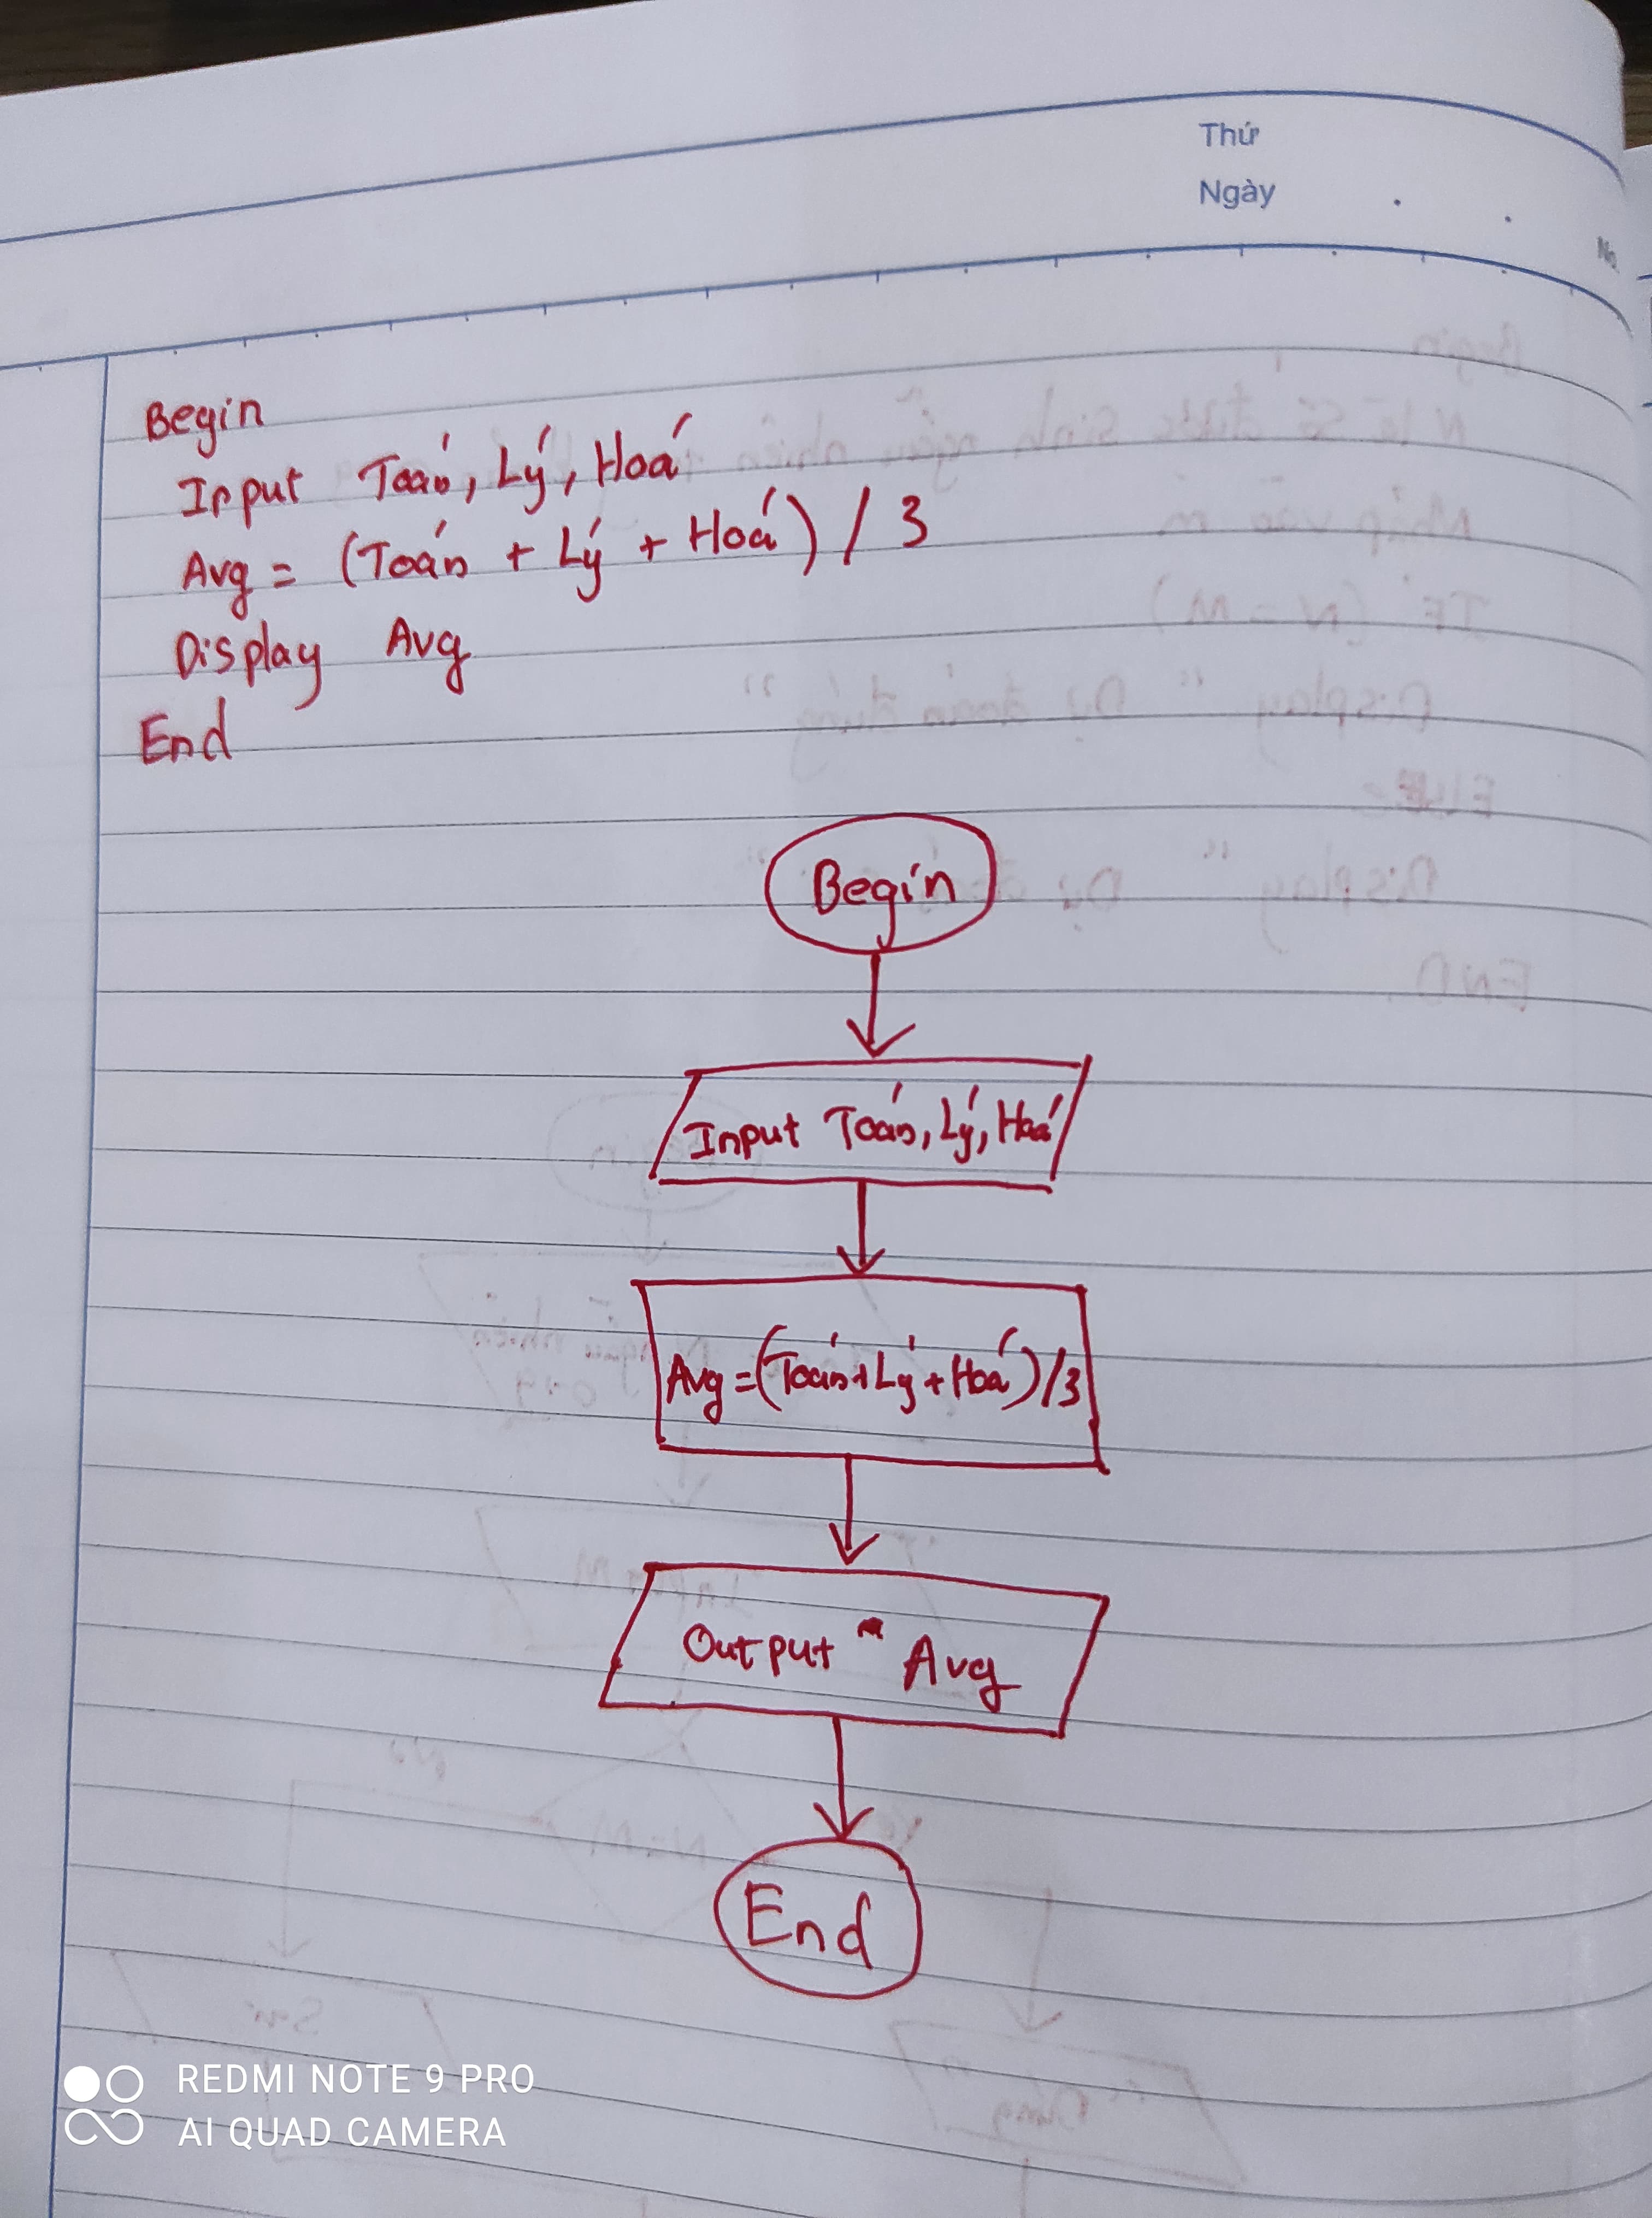 Thứ
Ngày
No.
Begin
Input Toán, Lý, Hoá
Avg = (Toán + Lý + Hoá) / 3
Display Avg
End
Begin
Input Toán, Lý, Hoá
Avg = (Toán + Lý + Hoá) / 3
Output Avg
End
REDMI NOTE 9 PRO
AI QUAD CAMERA